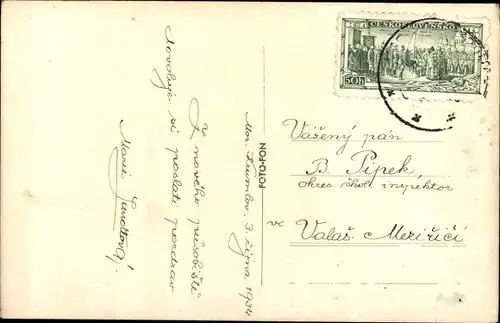 Mor. Krumlov, 3. října 1934
Z nového působiště
dovoluje si poslati pozdrav
Marie
FOTO-FON
ČESKOSLOVENSKO
50h
Vážený pán
B. Pipek
okres. škol. inspektor
ve
Valaš. Meziříčí